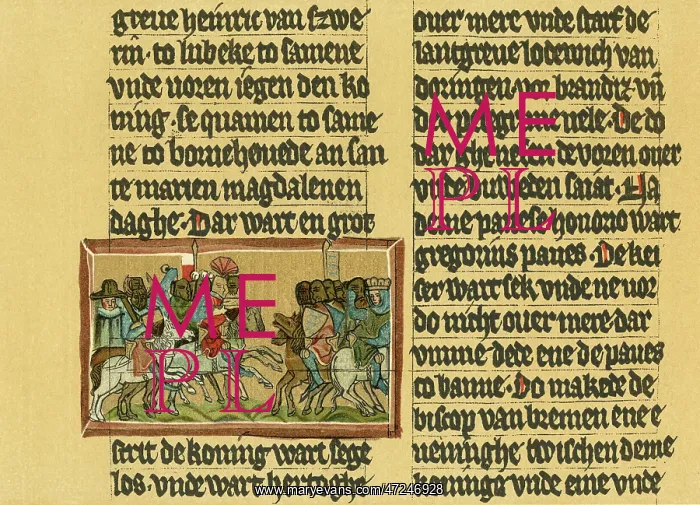 greue heinric van szwe
rin · to lubeke to samene
vnde uoren iegen den ko
ning · se quamen to same
ne to bornehouede an san
te marien magdalenen
daghe · Dar wart en grot
strit de koning wart sege
los · vnde wart hertoghe
ouer mere vnde starf de
lantgreue lodewich van
doringen vor brandiz · vn
der pelegrime uele · De do
dar de voren ouer
vnde
deme pauese honorio wart
gregorius paues · De kei
ser wart sek vnde ne uor
do nicht ouer mere · dar
vmme dede ene de paues
to banne · Do makede de
biscop van bremen ene e
ueninghe twischen deme
koninge vnde eme vnde
ME
PL
ME
PL
www.maryevans.com/47246928